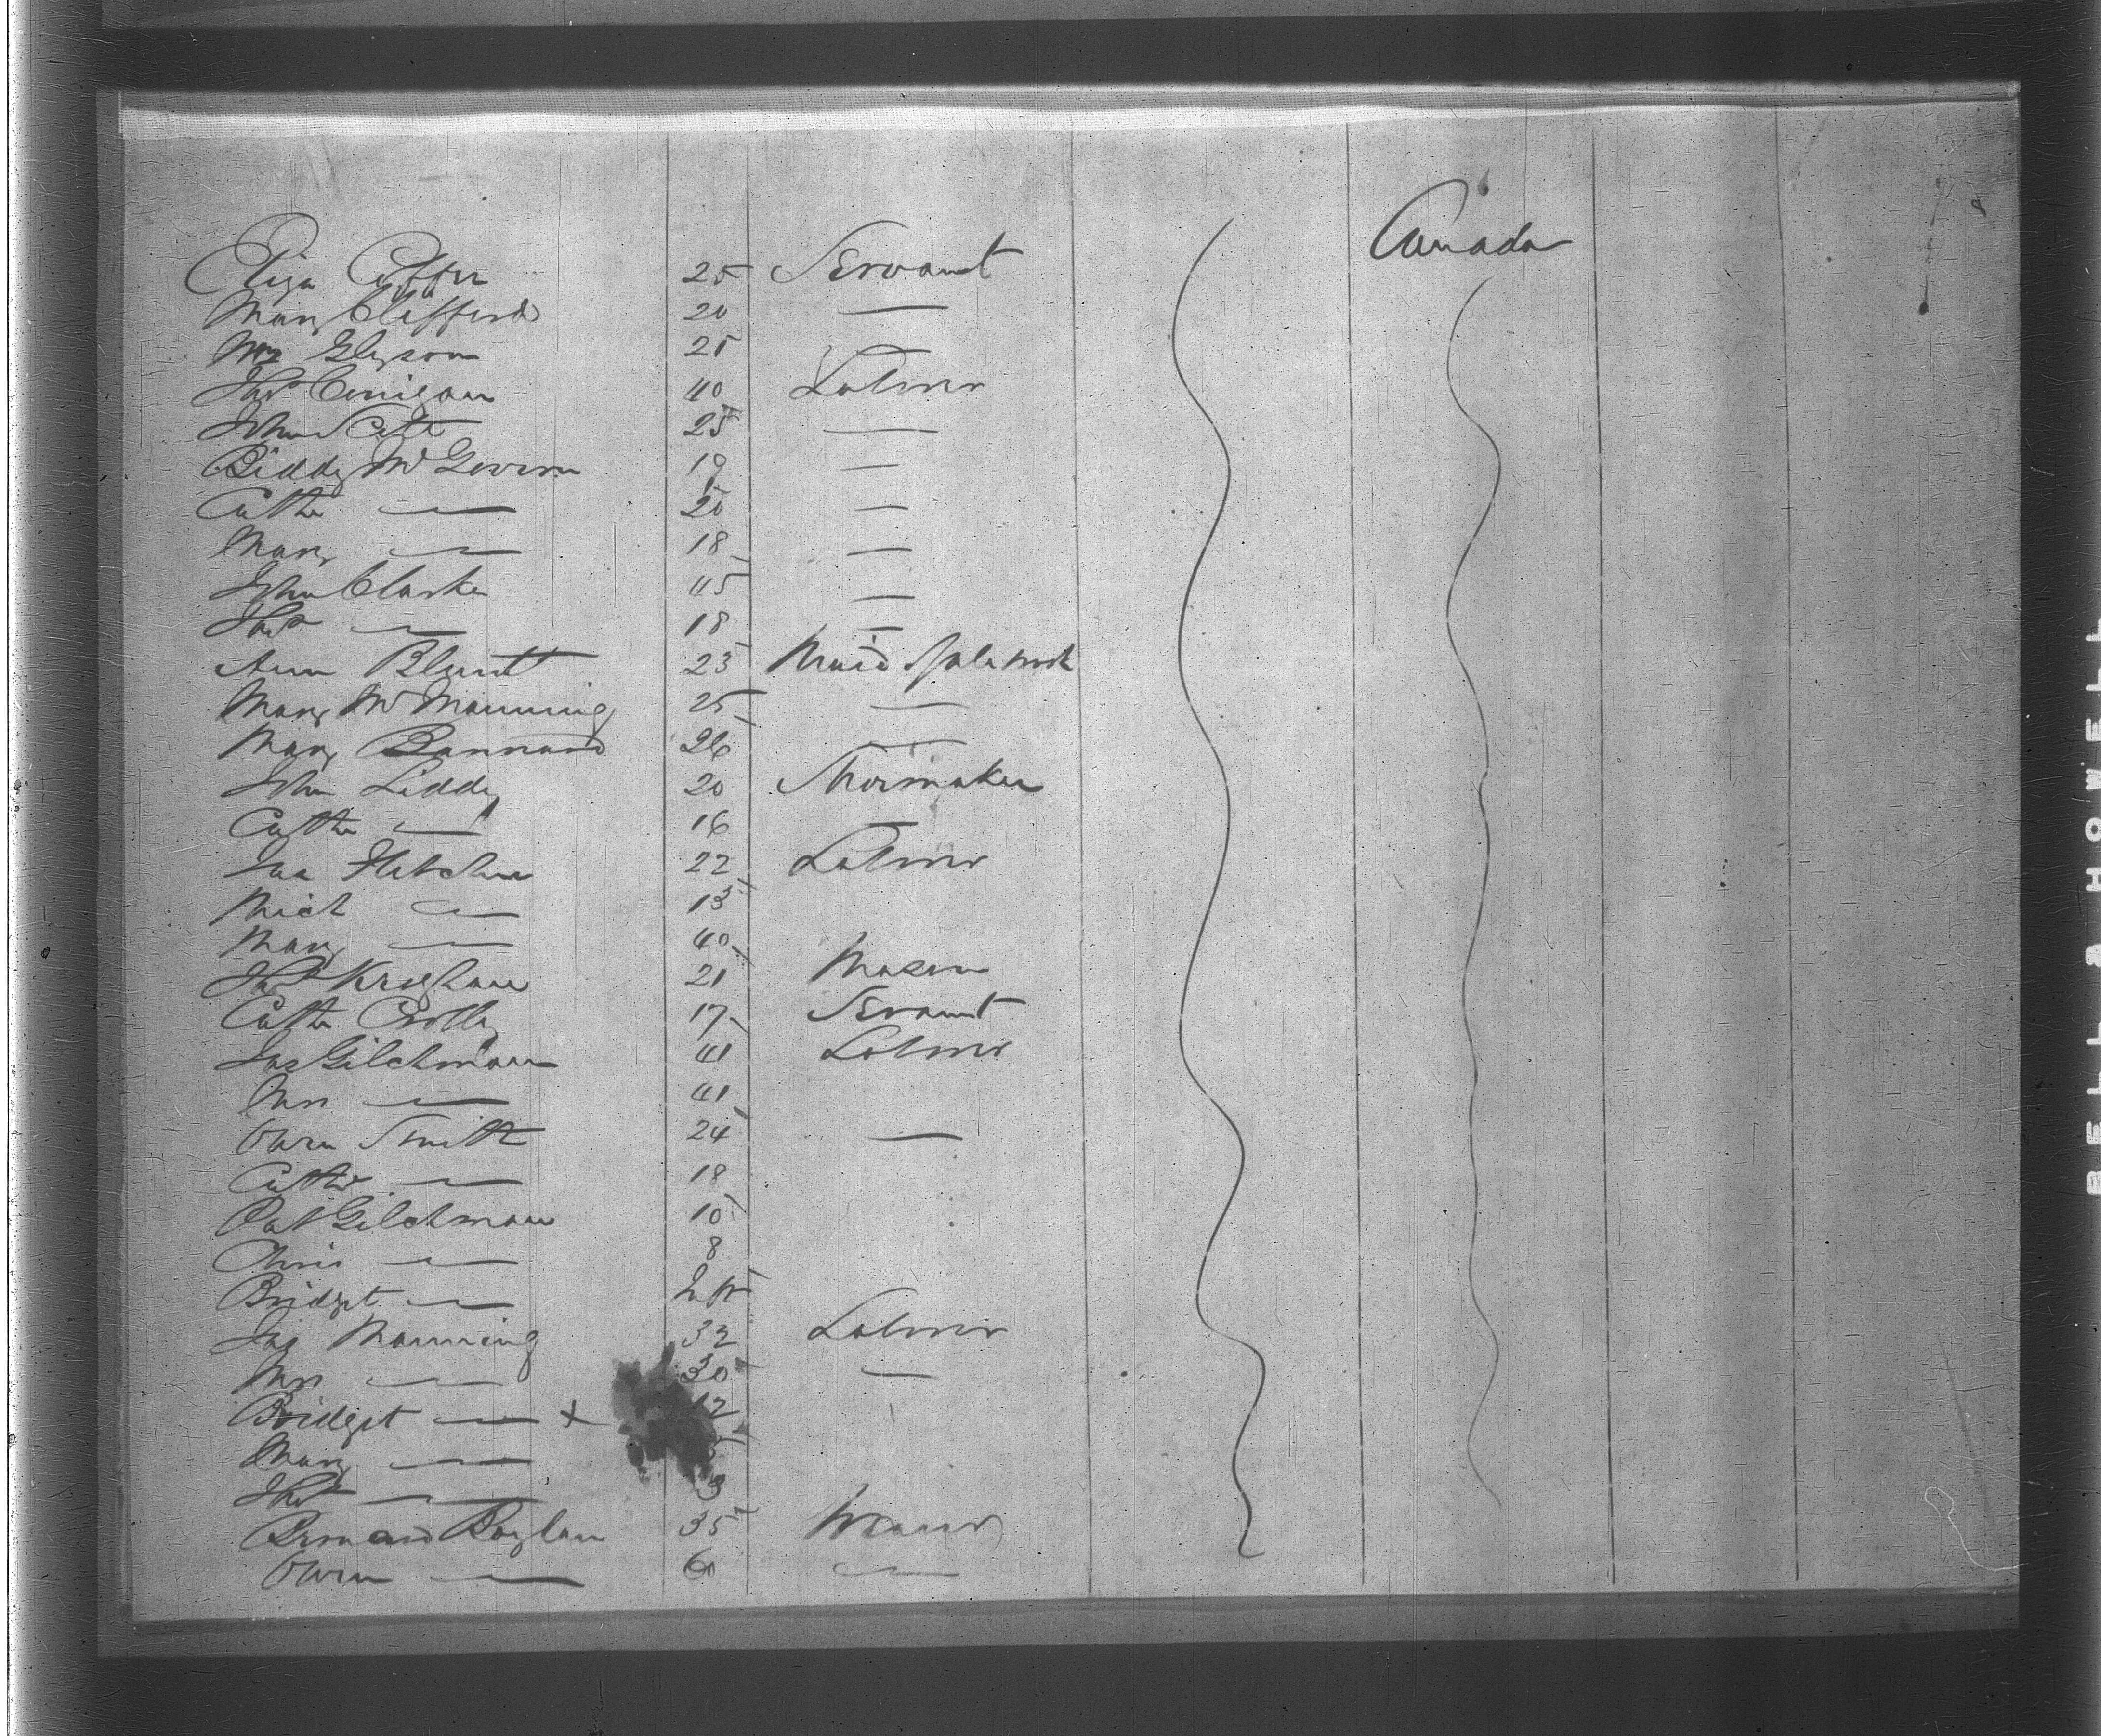 Canada
Eliza 25 Servant
Mary Clifford 20 —
Gleeson 25 —
Thos Corrigan 40 Labourer
John 25 —
Biddy McGovern 19 —
Cathe — 20 —
Mary — 18 —
John Clarke 45 —
Thos — 18 —
Ann Blunt 23 Maid
Mary McManning 25 —
Mary 26 —
John Liddy 20 Shoemaker
Cathe — 16 —
Jas Fletcher 22 Labourer
Mich — 13
Mary — 40
21 Mason
Cathe 17 Servant
Jas Gilchman 41 Labourer
Mrs — 41
Owen Smith 24 —
Cathe — 18
Pat Gilchman 10
Chris — 8
Bridget — Inft
Jas Manning 32 Labourer
Mrs — 30 —
Bridget — x 12
Mary —
Thos — 3
Bernard Boylan 35 Weaver
Owen — 60 —
BELL & HOWELL